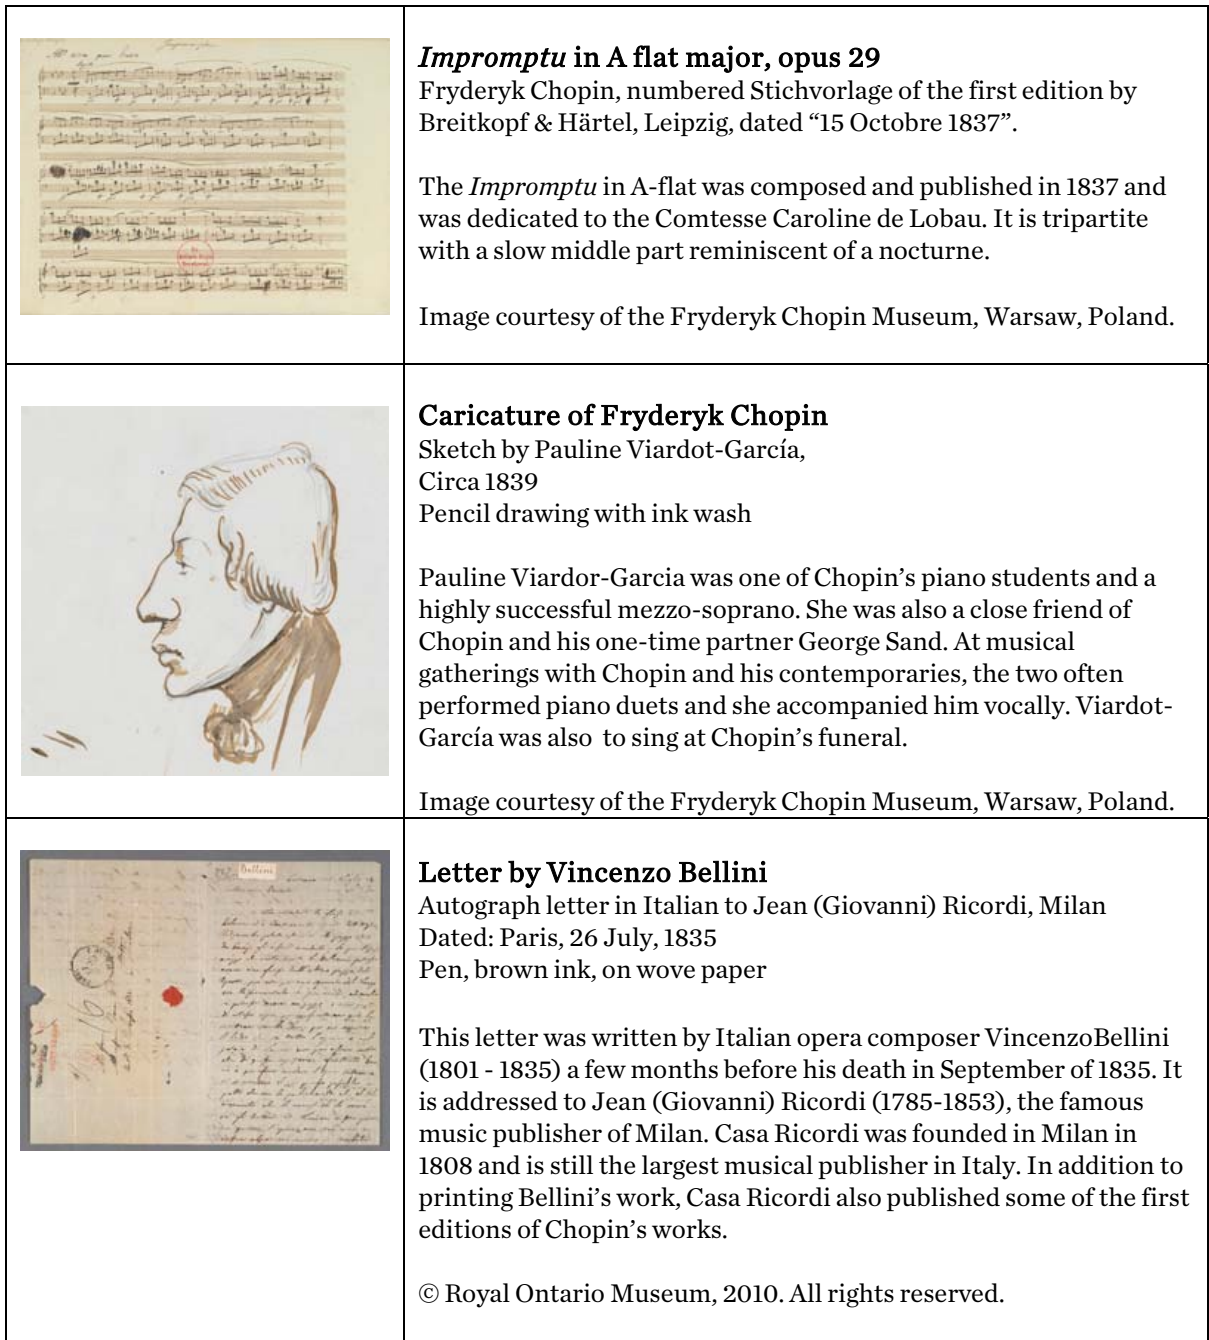 Impromptu in A flat major, opus 29
Fryderyk Chopin, numbered Stichvorlage of the first edition by
Breitkopf & Härtel, Leipzig, dated “15 Octobre 1837”.
The Impromptu in A-flat was composed and published in 1837 and
was dedicated to the Comtesse Caroline de Lobau. It is tripartite
with a slow middle part reminiscent of a nocturne.
Image courtesy of the Fryderyk Chopin Museum, Warsaw, Poland.
Caricature of Fryderyk Chopin
Sketch by Pauline Viardot-García,
Circa 1839
Pencil drawing with ink wash
Pauline Viardor-Garcia was one of Chopin’s piano students and a
highly successful mezzo-soprano. She was also a close friend of
Chopin and his one-time partner George Sand. At musical
gatherings with Chopin and his contemporaries, the two often
performed piano duets and she accompanied him vocally. Viardot-
García was also  to sing at Chopin’s funeral.
Image courtesy of the Fryderyk Chopin Museum, Warsaw, Poland.
Bellini
Letter by Vincenzo Bellini
Autograph letter in Italian to Jean (Giovanni) Ricordi, Milan
Dated: Paris, 26 July, 1835
Pen, brown ink, on wove paper
This letter was written by Italian opera composer VincenzoBellini
(1801 - 1835) a few months before his death in September of 1835. It
is addressed to Jean (Giovanni) Ricordi (1785-1853), the famous
music publisher of Milan. Casa Ricordi was founded in Milan in
1808 and is still the largest musical publisher in Italy. In addition to
printing Bellini’s work, Casa Ricordi also published some of the first
editions of Chopin’s works.
© Royal Ontario Museum, 2010. All rights reserved.